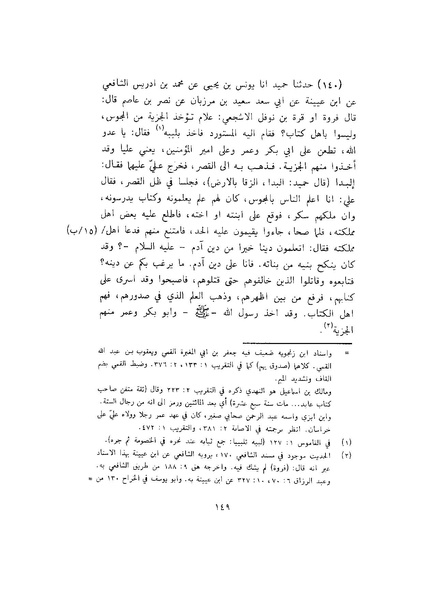 (١٤٠) حدثنا حميد انا يونس بن يحيى عن محمد بن ادريس الشافعي
عن ابن عيينة عن ابي سعد سعيد بن مرزبان عن نصر بن عاصم قال:
قال فروة او قرة بن نوفل الاشجعي: علام تؤخذ الجزية من المجوس،
وليسوا باهل كتاب؟ فقام اليه المستورد فاخذ بلببه(١) فقال: يا عدو
الله، تطعن على ابي بكر وعمر وعلى امير المؤمنين، يعني عليا وقد
أخذوا منهم الجزية. فذهب به الى القصر، فخرج عليّ عليهما فقال:
إلبدا (قال حميد: البدا، الزقا بالارض)، فجلسا في ظل القصر، فقال
علي: انا اعلم الناس بالمجوس، كان لهم علم يعلمونه وكتاب يدرسونه،
وان ملكهم سكر، فوقع على ابنته او اخته، فاطلع عليه بعض اهل
مملكته، فلما صحا، جاءوا يقيمون عليه الحد، فامتنع منهم فدعا اهل/ (١٥/ب)
مملكته فقال: اتعلمون دينا خيرا من دين آدم - عليه السلام - ؟ وقد
كان ينكح بنيه من بناته. فأنا على دين آدم. ما يرغب بكم عن دينه؟
فتابعوه وقاتلوا الذين خالفوهم حتى قتلوهم، فأصبحوا وقد اسرى على
كتابهم، فرفع من بين اظهرهم، وذهب العلم الذي في صدورهم، فهم
اهل الكتاب. وقد أخذ رسول الله - ﷺ - وابو بكر وعمر منهم
الجزية(٢).
= واسناد ابن زنجويه ضعيف فيه جعفر بن ابي المغيرة القمي ويعقوب بن عبد الله
القمي. كلاهما (صدوق يهم) كما في التقريب ١: ١٣٣، ٢: ٣٧٦. وضبط القمي بضم
القاف وتشديد الميم.
ومالك بن اسماعيل هو النهدي ذكره في التقريب ٢: ٢٢٣ وقال (ثقة متقن صاحب
كتاب عابد... مات سنة سبع عشرة) أي بعد المائتين ورمز الى انه من رجال الستة.
وابن ابزي واسمه عبد الرحمن صحابي صغير، كان في عهد عمر رجلا وولاه عليّ على
خراسان. انظر ترجمته في الاصابة ٢: ٣٨١، والتقريب ١: ٤٧٢.
(١) في القاموس ١: ١٢٧ (لببه تلبيبا: جمع ثيابه عند نحره في الخصومة ثم جره).
(٢) الحديث موجود في مسند الشافعي ١٧٠، يرويه الشافعي عن ابن عيينة بهذا الاسناد
غير انه قال: (فروة) لم يشك فيه. واخرجه هق ٩: ١٨٨ من طريق الشافعي به.
وعبد الرزاق ٦: ٧٠، ١٠: ٣٢٧ عن ابن عيينة به. وابو يوسف في الخراج ١٣٠ من =
١٤٩